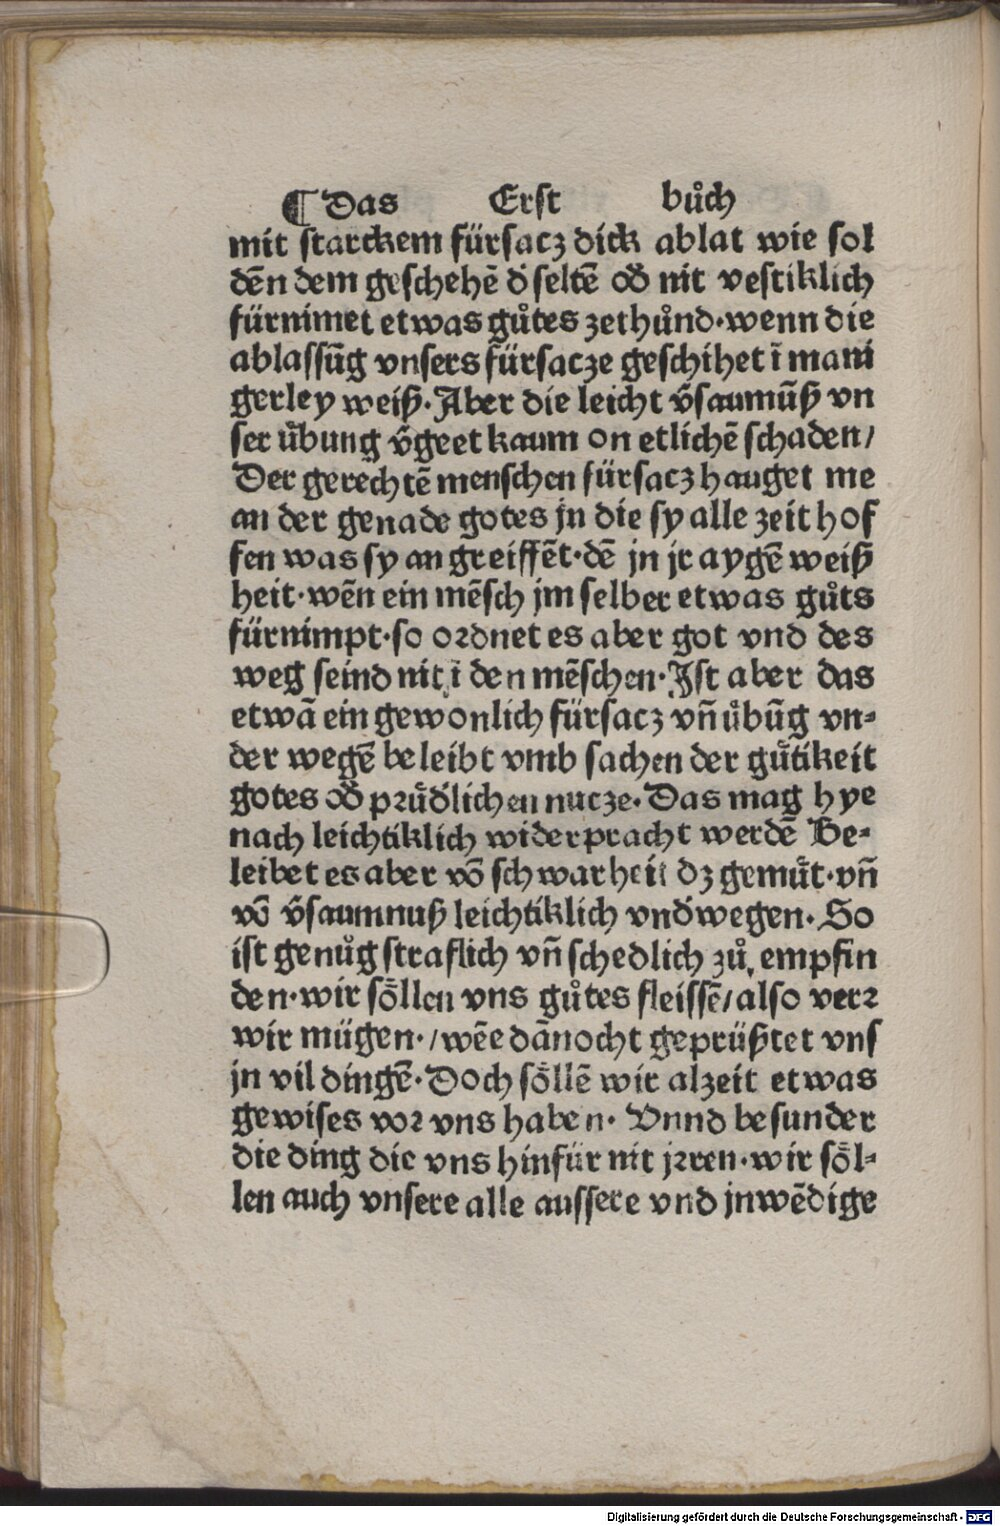 ¶ Das Erst bůch
mit starckem fürsacz dick ablat wie sol
dēn dem geschehē d̄ seltē od̄ nit vestiklich
fürnimet etwas gůtes zethůnd·wenn die
ablassūg vnsers fürsacze geschihet ī mani
gerley weiß·Aber die leicht v̄saumūß vn
ser u̇̈bung v̄geet kaum on etlichē schaden/
Der gerechtē menschen fürsacz hanget me
an der genade gotes jn die sy alle zeit hof
fen was sy an greiffēt·dē jn jr aygē weiß
heit·wēn ein mēsch jm selber etwas gůts
fürnimpt·so ordnet es aber got vnd des
weg seind nit ī den mēschen·Ist aber das
etwā ein gewonlich fürsacz vn̄ ůbūg vn-
der wegē beleibt vmb sachen der gu̇̈tikeit
gotes od̄ pru̇̈d̄lichen nucze·Das mag hye
nach leichtiklich widerpracht werdē Be-
leibet es aber vō schwarheit dz gemu̇̈t·vn̄
vō v̄saumnuß leichtiklich vnd̄wegen·So
ist genůg straflich vn̄ schedlich zů empfin
den·wir so̊llen vns gůtes fleissē/also verr
wir mügen·/wēe dānocht geprüßtet vns
jn vil dingē·Doch so̊llē wir alzeit etwas
gewises vor vns haben·Vnnd besunder
die ding die vns hinfür nit jrren·wir so̊l-
len auch vnsere alle aussere vnd jnwēdige
Digitalisierung gefördert durch die Deutsche Forschungsgemeinschaft - DFG